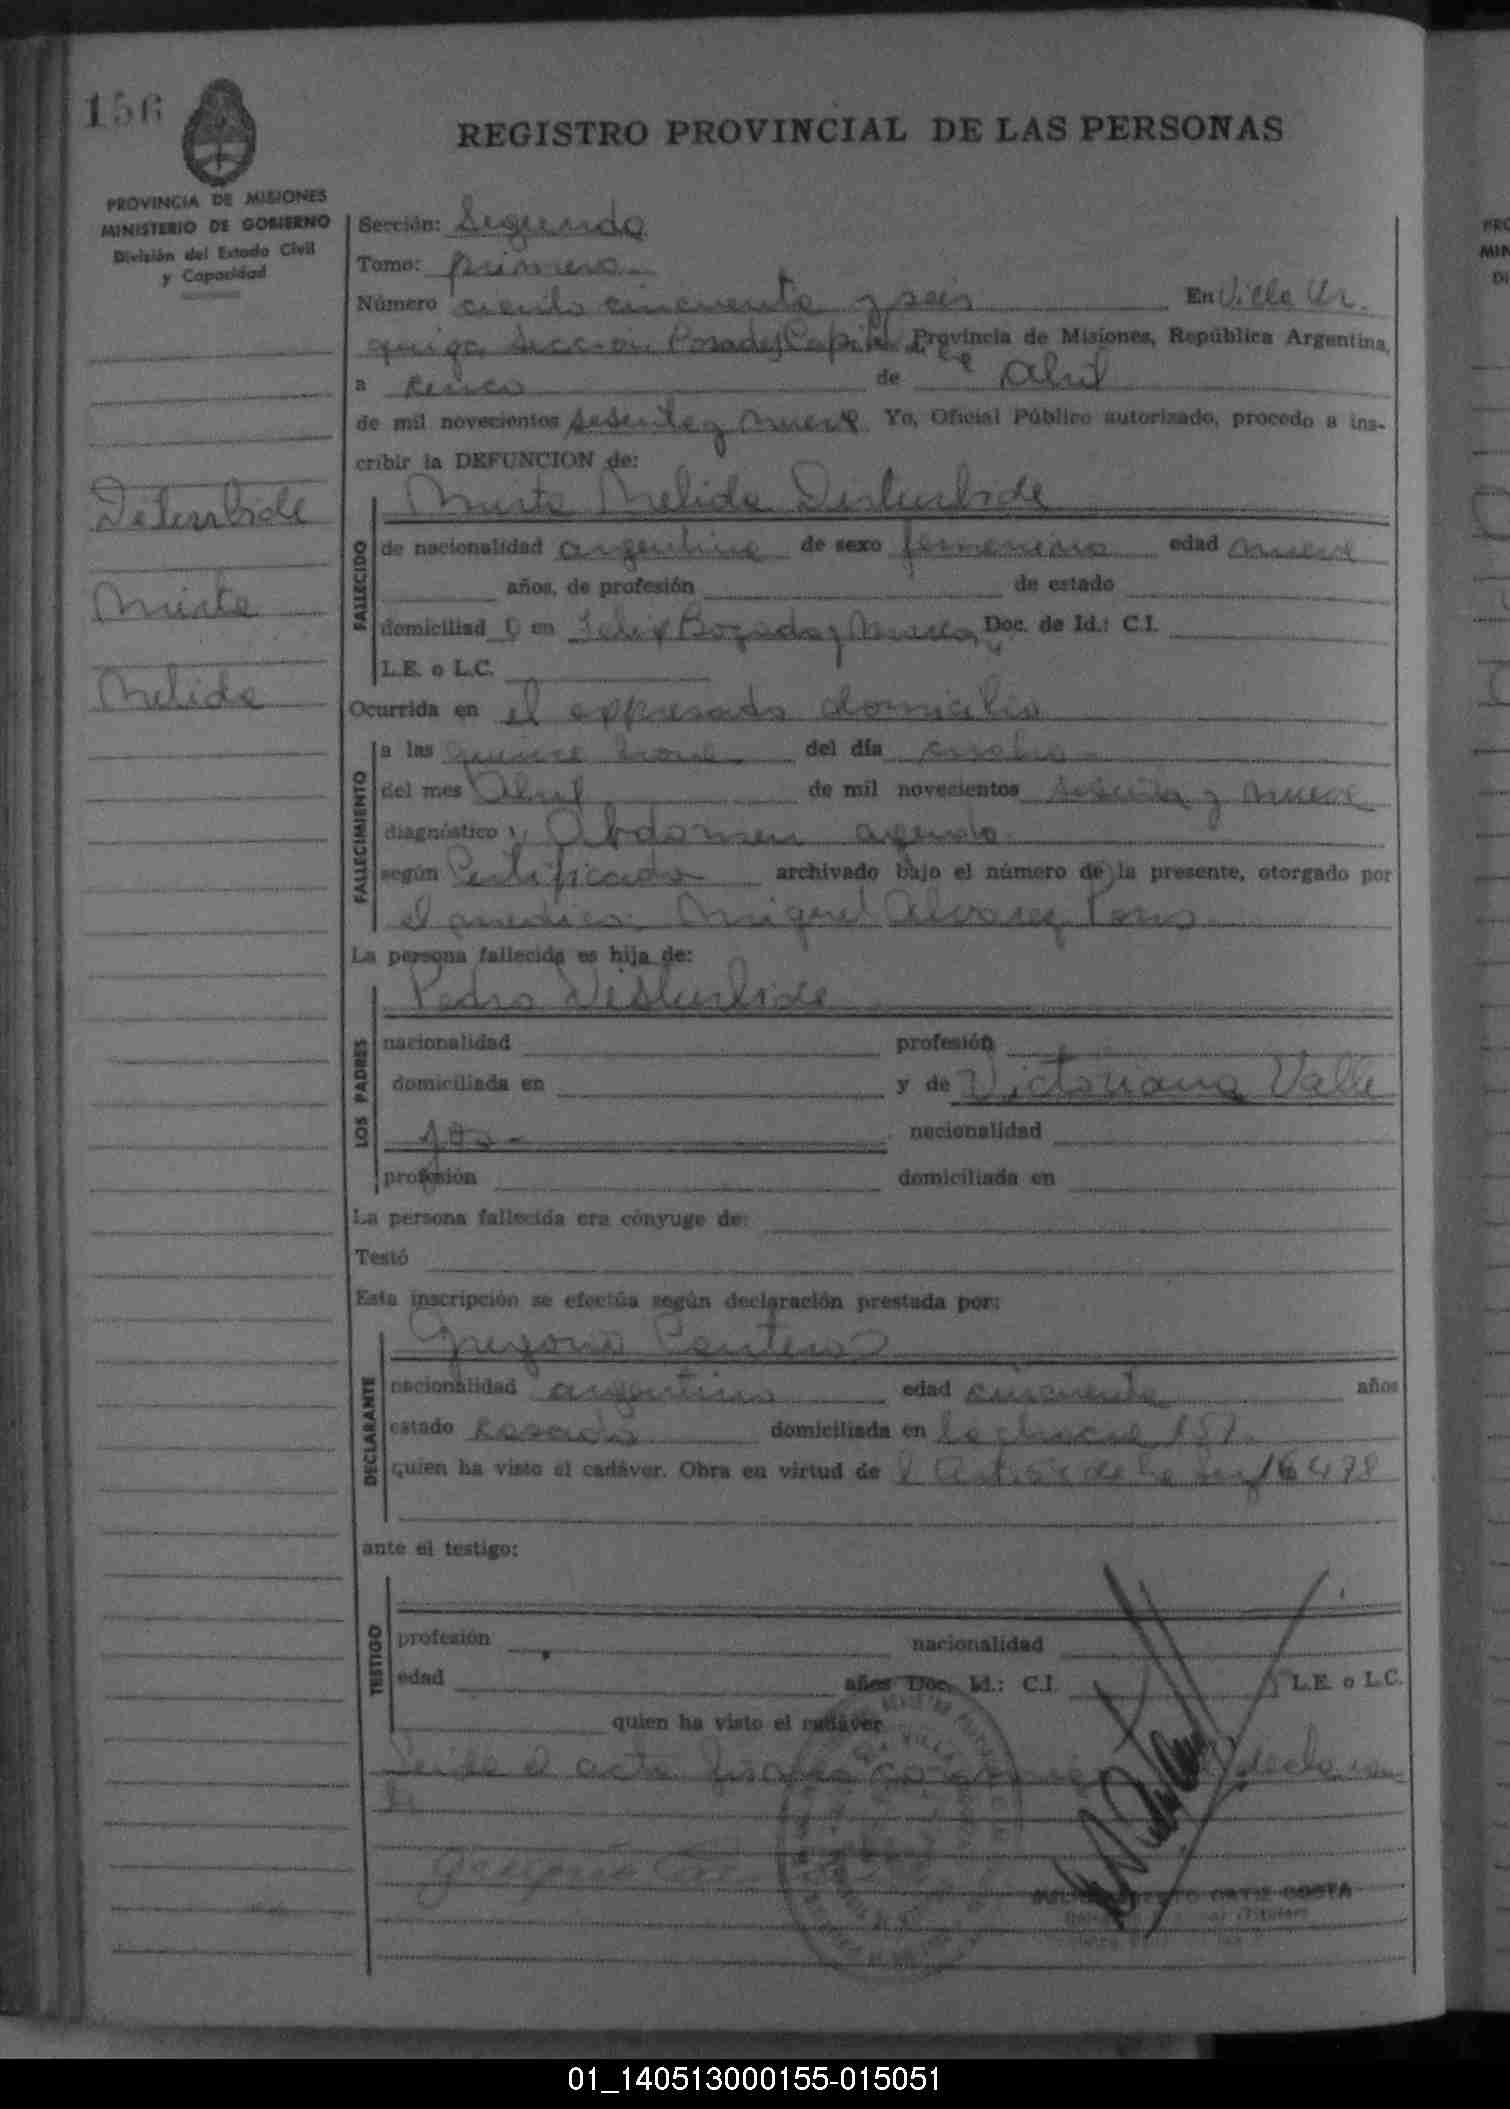 156
REGISTRO PROVINCIAL DE LAS PERSONAS
PROVINCIA DE MISIONES
MINISTERIO DE GOBIERNO
División del Estado Civil
y Capacidad
Sección: Segunda
Tomo: primero
Número ciento cincuenta y seis En Villa Ur
quiza Sección Posadas Capital Provincia de Misiones, República Argentina,
a cinco de Abril
de mil novecientos sesenta y nueve Yo, Oficial Público autorizado, procedo a ins-
cribir la DEFUNCION de:
Mirta Nelida
Mirta
Nelida
FALLECIDO
de nacionalidad argentina de sexo femenino edad nueve
años, de profesión de estado
domiciliad en Felix Bogado y Doc. de Id.: C.I.
L.E. o L.C.
Ocurrida en el expresado domicilio
FALLECIMIENTO
a las quince horas del día cuatro
del mes Abril de mil novecientos sesenta y nueve
diagnóstico Abdomen agudo
según Certificado archivado bajo el número de la presente, otorgado por
el medico Miguel Alvarez
La persona fallecida es hija de:
LOS PADRES
Pedro
nacionalidad profesión
domiciliada en y de Victoriana Valle
jos - nacionalidad
profesión domiciliada en
La persona fallecida era cónyuge de:
Testó
Esta inscripción se efectúa según declaración prestada por:
DECLARANTE
Gregorio Centeno
nacionalidad argentino edad cincuenta años
estado casado domiciliada en la chacra 151
quien ha visto el cadáver. Obra en virtud de de la Ley 16478
ante el testigo:
TESTIGO
profesión nacionalidad
edad años Doc. Id.: C.I. L.E. o L.C.
quien ha visto el cadáver
Leida el acta declaran
te
Gregorio
ORTIZ COSTA
01_140513000155-015051